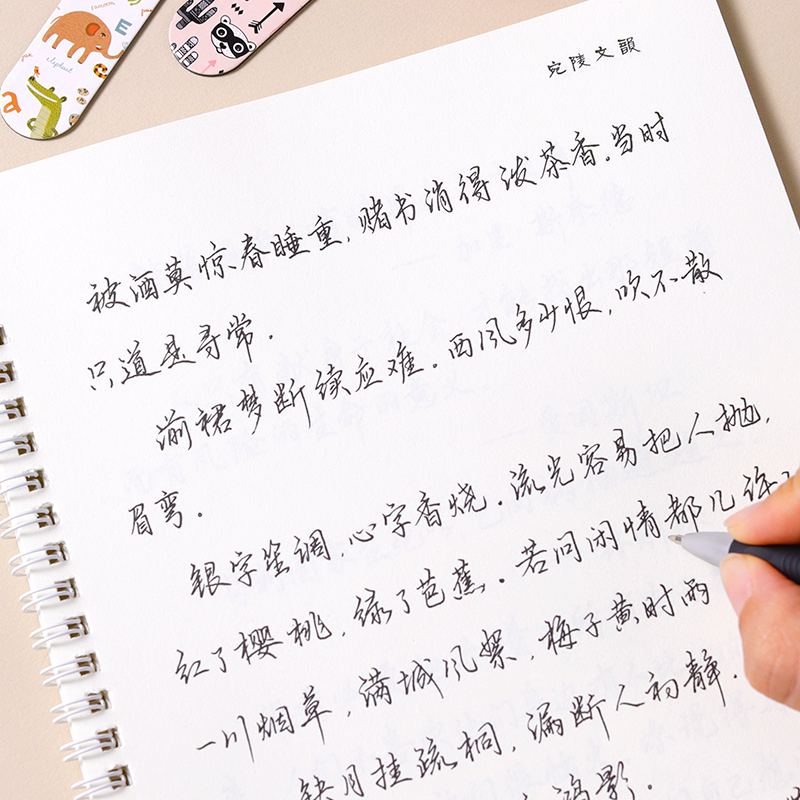 宛陵文韻
被酒莫惊春睡重，赌书消得泼茶香。当时
只道是寻常。
湔裙梦断续应难。西风多少恨，吹不散
眉弯。
银字笙调，心字香烧。流光容易把人抛，
红了樱桃，绿了芭蕉。若问闲情都几许？
一川烟草，满城风絮，梅子黄时雨
缺月挂疏桐，漏断人初静。
鸿影．
elephant